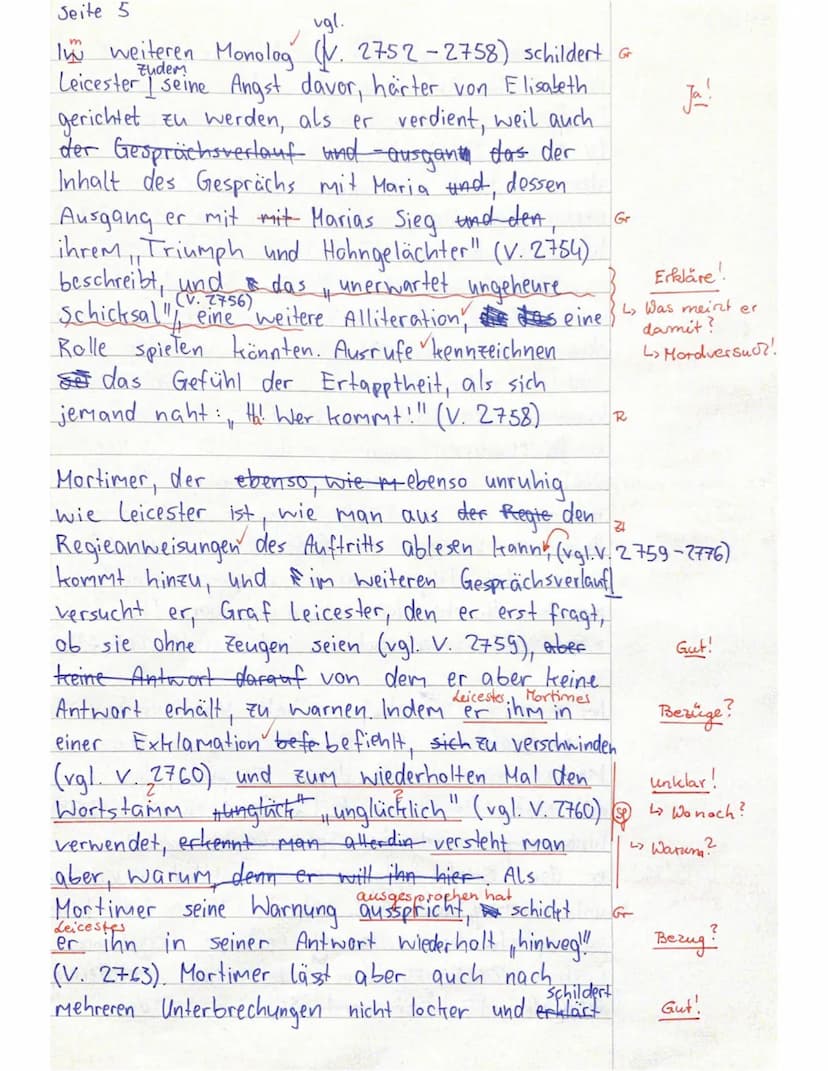 Seite 5
vgl.
Im weiteren Monolog (V. 2752-2758) schildert Gr
zudem
Leicester seine Angst davor, härter von Elisabeth Ja!
gerichtet zu werden, als er verdient, weil auch
der Gesprächsverlauf und -ausgang das der
Inhalt des Gesprächs mit Maria und, dessen
Ausgang er mit mit Marias Sieg und den, Gr
ihrem „Triumph und Hohngelächter" (V. 2754)
beschreibt, und das „unerwartet ungeheure Erkläre!
(V. 2756)
Schicksal", eine weitere Alliteration, die das eine ↳ Was meint er damit?
Rolle spielen könnten. Ausrufe kennzeichnen ↳ Mordversuch?!
das Gefühl der Ertapptheit, als sich
jemand naht: „Ha! Wer kommt!" (V. 2758) R
Mortimer, der ebenso, wie M ebenso unruhig
wie Leicester ist, wie man aus der Regie den
Regieanweisungen des Auftritts ablesen kann, (vgl. V. 2759-2776) Zi
kommt hinzu, und im weiteren Gesprächsverlauf
versucht er, Graf Leicester, den er erst fragt,
ob sie ohne Zeugen seien (vgl. V. 2759), aber Gut!
keine Antwort darauf von dem er aber keine
Leicester Mortimer
Antwort erhält, zu warnen. Indem er ihm in Bezüge?
einer Exklamation befe befiehlt, sich zu verschwinden
(vgl. V. 2760) und zum wiederholten Mal den unklar!
Wortstamm „unglück" „unglücklich" (vgl. V. 2760) Sp ↳ Wonach?
verwendet, erkennt man allerdin versteht man ↳ Warum?
aber, warum, denn er will ihn hier. Als
ausgesprochen hat
Mortimer seine Warnung ausspricht, schickt Gr
Leicester
er ihn in seiner Antwort wiederholt „hinweg!" Bezug?
(V. 2763). Mortimer lässt aber auch nach
schildert
mehreren Unterbrechungen nicht locker und erklärt Gut!